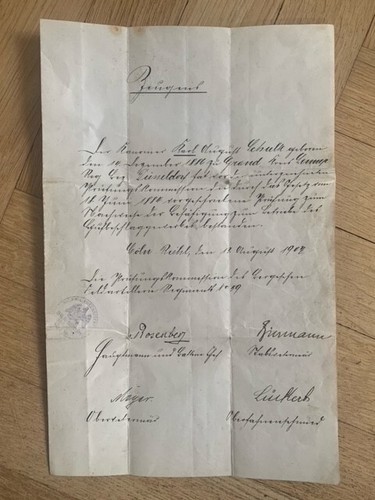 Zeugnis
Der Kanonier Karl August Schulte geboren
den 10. Dezember 1886 zu Kreis Lennep
Reg. Bez. Düsseldorf hat vor der unterzeichneten
Prüfungskommission die durch das Gesetz vom
18. Juni 1884 vorgeschriebene Prüfung zum
Nachweise der Befähigung zum Betriebe des
Hufbeschlaggewerbes bestanden.
den 18. August 1908.
Die Prüfungskommission des Bergischen
Feldartillerie Regiments No 59
Rosenberg
Hauptmann und Batterie Chef
Stabsveterinär
Meyer
Oberveterinär
Lückert
Oberfahnenschmied